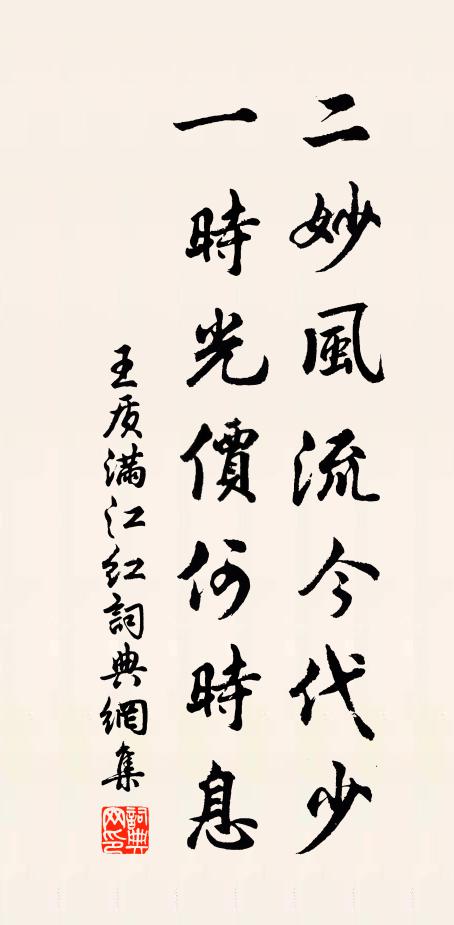 二妙風流今代少
一時光價何時息
王质满江红詞典網集
詞典网印